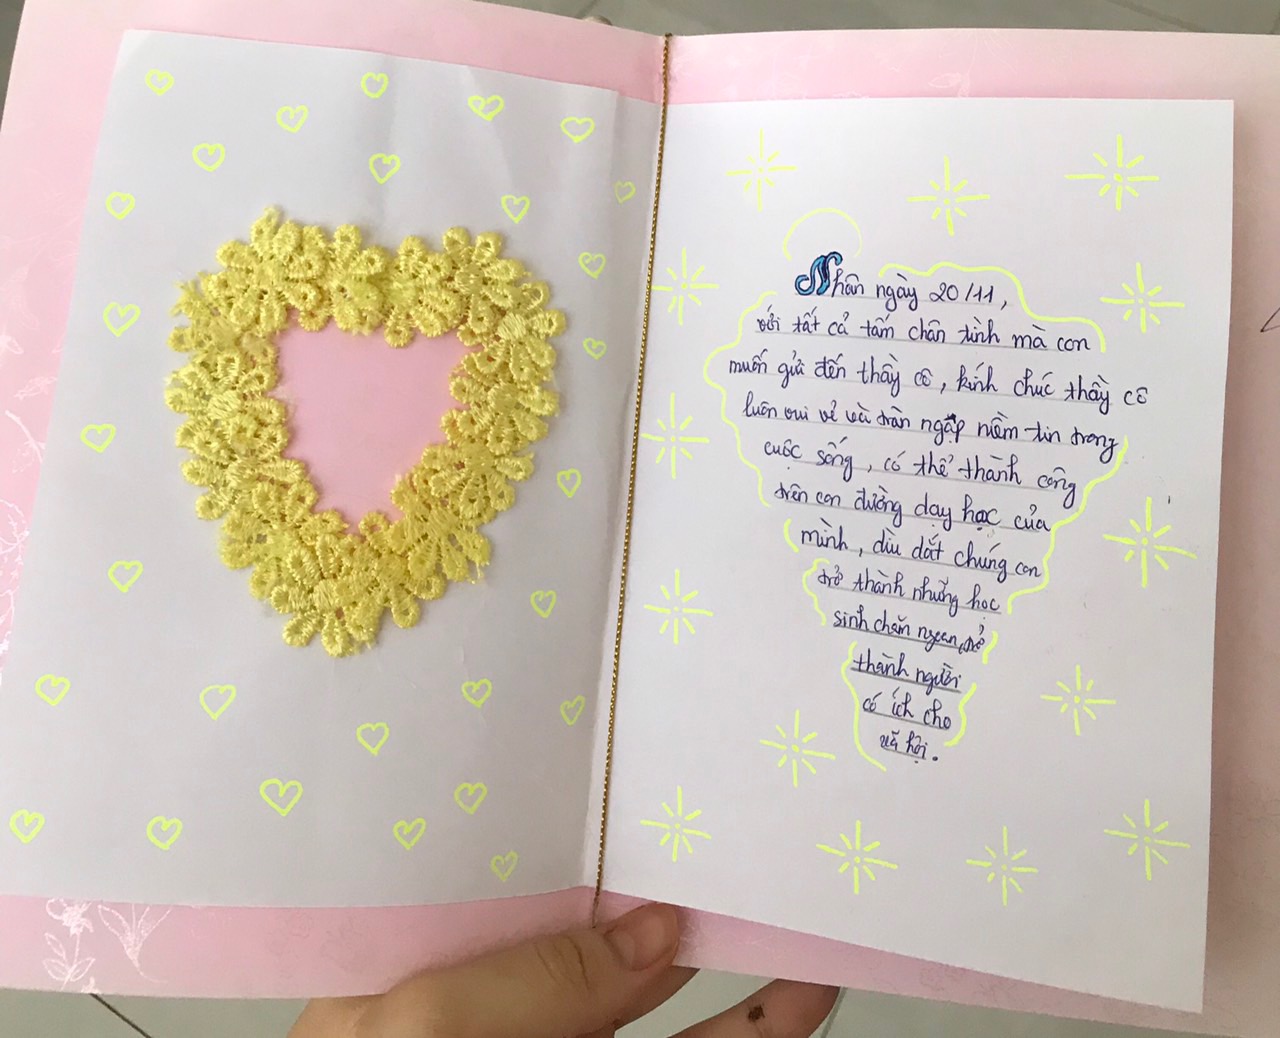 Nhân ngày 20/11,
với tất cả tấm chân tình mà con
muốn gửi đến thầy cô, kính chúc thầy cô
luôn vui vẻ và tràn ngập niềm tin trong
cuộc sống, có thể thành công
trên con đường dạy học của
mình, dìu dắt chúng con
trở thành những học
sinh chăm ngoan, trở
thành người
có ích cho
xã hội.